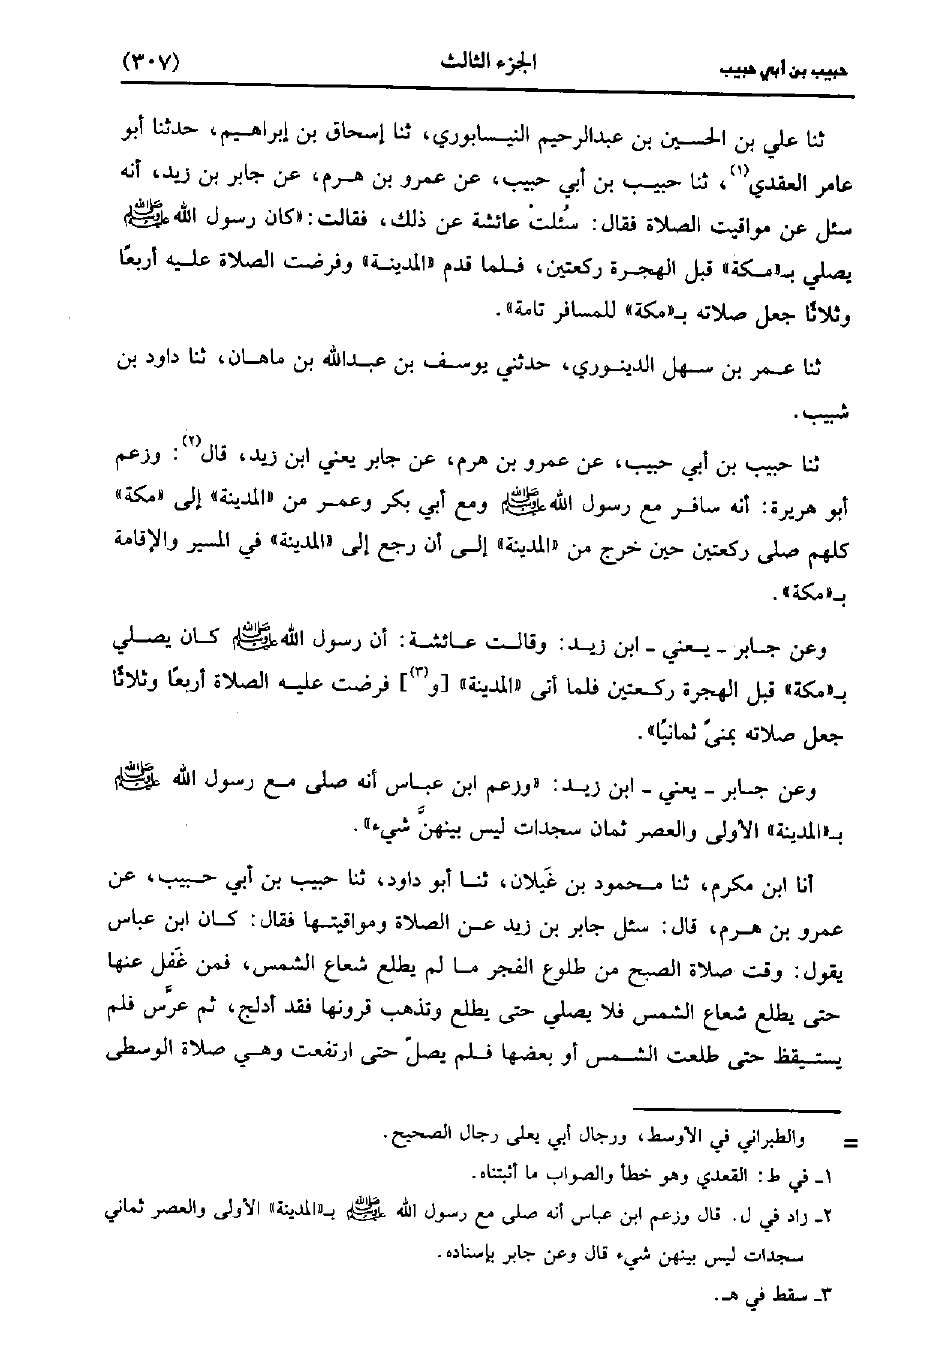 حبيب بن أبي حبيب الجزء الثالث (٣٠٧)
ثنا علي بن الحسين بن عبدالرحيم النيسابوري، ثنا إسحاق بن إبراهيم، حدثنا أبو
عامر العقدي(١)، ثنا حبيب بن أبي حبيب، عن عمرو بن هرم، عن جابر بن زيد، أنه
سئل عن مواقيت الصلاة فقال: سُئلتْ عائشة عن ذلك، فقالت: «كان رسول الله ﷺ
يصلي بـ«مكة» قبل الهجرة ركعتين، فلما قدم «المدينة» وفرضت الصلاة عليه أربعًا
وثلاثًا جعل صلاته بـ«مكة» للمسافر تامة».
ثنا عمر بن سهل الدينوري، حدثني يوسف بن عبدالله بن ماهان، ثنا داود بن
شبيب.
ثنا حبيب بن أبي حبيب، عن عمرو بن هرم، عن جابر يعني ابن زيد، قال(٢): وزعم
أبو هريرة: أنه سافر مع رسول الله ﷺ ومع أبي بكر وعمر من «المدينة» إلى «مكة»
كلهم صلى ركعتين حين خرج من «المدينة» إلى أن رجع إلى «المدينة» في المسير والإقامة
بـ«مكة».
وعن جابر ـ يعني ـ ابن زيد: وقالت عائشة: أن رسول الله ﷺ كان يصلي
بـ«مكة» قبل الهجرة ركعتين فلما أتى «المدينة» [و(٣)] فرضت عليه الصلاة أربعًا وثلاثًا
جعل صلاته بمنىً ثمانيًا».
وعن جابر ـ يعني ـ ابن زيد: «وزعم ابن عباس أنه صلى مع رسول الله ﷺ
بـ«المدينة» الأولى والعصر ثمان سجدات ليس بينهنَّ شيء».
أنا ابن مكرم، ثنا محمود بن غَيلان، ثنا أبو داود، ثنا حبيب بن أبي حبيب، عن
عمرو بن هرم، قال: سئل جابر بن زيد عن الصلاة ومواقيتها فقال: كان ابن عباس
يقول: وقت صلاة الصبح من طلوع الفجر ما لم يطلع شعاع الشمس، فمن غَفَل عنها
حتى يطلع شعاع الشمس فلا يصلي حتى يطلع وتذهب قرونها فقد أدلج، ثم عرَّس فلم
يستيقظ حتى طلعت الشمس أو بعضها فلم يصلّ حتى ارتفعت وهي صلاة الوسطى
= والطبراني في الأوسط، ورجال أبي يعلى رجال الصحيح.
١ـ في ط: القعدي وهو خطأ والصواب ما أثبتناه.
٢ـ زاد في ل. قال وزعم ابن عباس أنه صلى مع رسول الله ﷺ بـ«المدينة» الأولى والعصر ثماني
سجدات ليس بينهن شيء قال وعن جابر بإسناده.
٣ـ سقط في هـ.